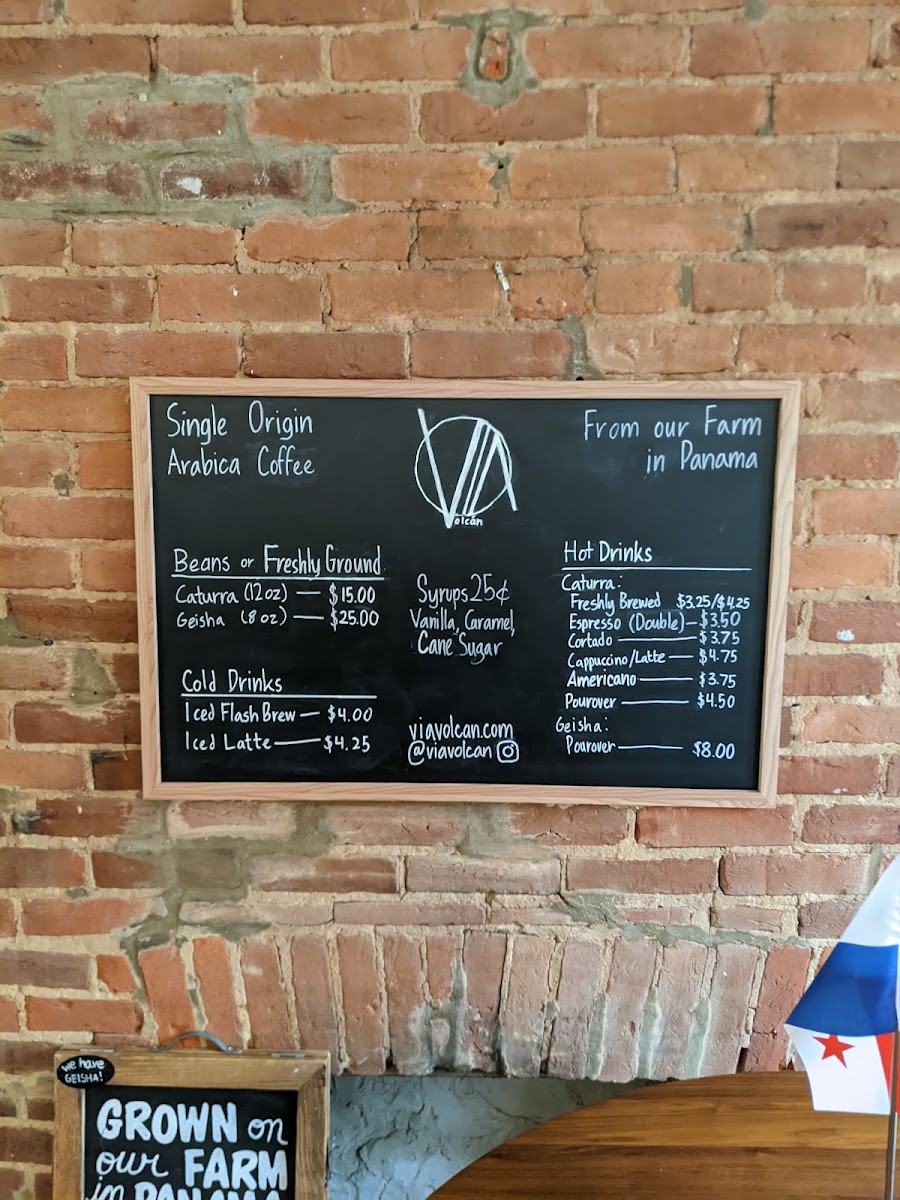 Single Origin
Arabica Coffee
VIA
Volcán
From our Farm
in Panama
Beans or Freshly Ground
Caturra (12 oz) — $15.00
Geisha (8 oz) — $25.00
Cold Drinks
Iced Flash Brew — $4.00
Iced Latte — $4.25
Syrups 25¢
Vanilla, Caramel,
Cane Sugar
viavolcan.com
@viavolcan
Hot Drinks
Caturra:
Freshly Brewed $3.25/$4.25
Espresso (Double) — $3.50
Cortado — $3.75
Cappuccino/Latte — $4.75
Americano — $3.75
Pourover — $4.50
Geisha:
Pourover — $8.00
we have
GEISHA!
GROWN on
our FARM
in PANAMA